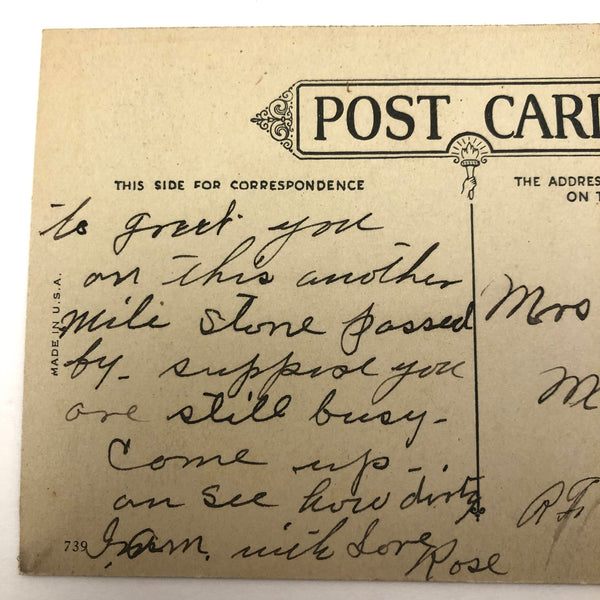 POST CARD
THIS SIDE FOR CORRESPONDENCE
THE ADDRES
ON T
to greet you
on this another
Mile Stone passed
by - suppose you
are still busy -
Come up -
an see how dirty
I am. with Love
Rose
MADE IN U.S.A.
739
Mrs
M
R F